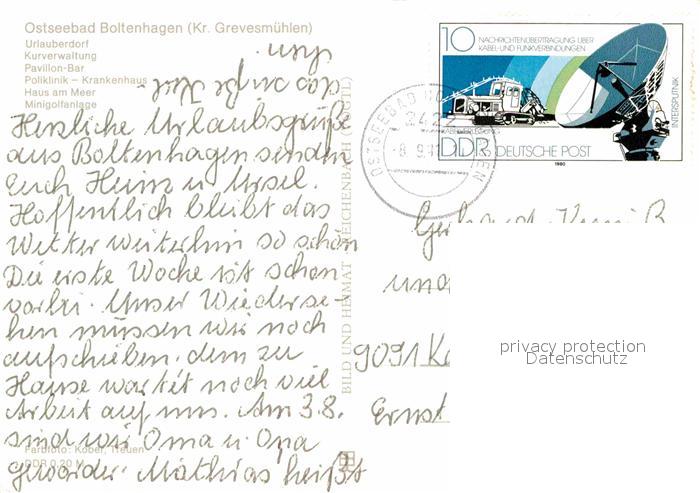 Ostseebad Boltenhagen (Kr. Grevesmühlen)
Urlauberdorf
Kurverwaltung
Pavillon-Bar
Poliklinik – Krankenhaus
Haus am Meer
Minigolfanlage
Herzliche Urlaubsgrüße
aus Boltenhagen senden
Euch Heinz u. Ursel.
Hoffentlich bleibt das
Wetter weiterhin so schön
Die erste Woche ist schon
vorbei. Unser Wiederse-
hen müssen wir noch
aufschieben, denn zu
Hause wartet noch viel
Arbeit auf uns. Am 3.8.
sind wir Oma u. Opa
geworden. Mathias heißt
Farbfoto: Kober, Treuen
DDR 0,20 M
BILD UND HEIMAT REICHENBACH (VOGTL)
10 NACHRICHTENÜBERTRAGUNG ÜBER
KABEL- UND FUNKVERBINDUNGEN
INTERSPUTNIK
DDR DEUTSCHE POST
1980
OSTSEEBAD
242
und
9091 Ka
Ernst
privacy protection
Datenschutz